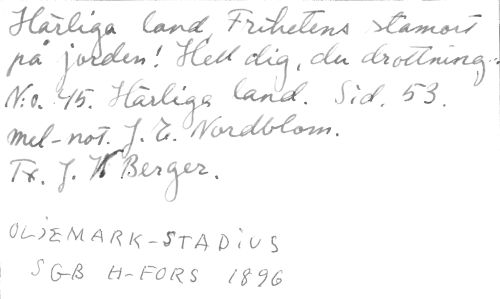 Härliga land, Frihetens stamort
på jorden! Hell dig, du drottning..
N:o. 45. Härliga land. Sid. 53.
mel-not. J. E. Nordblom.
Tx. J. W Berger.
OLJEMARK-STADIUS
SGB H-FORS 1896